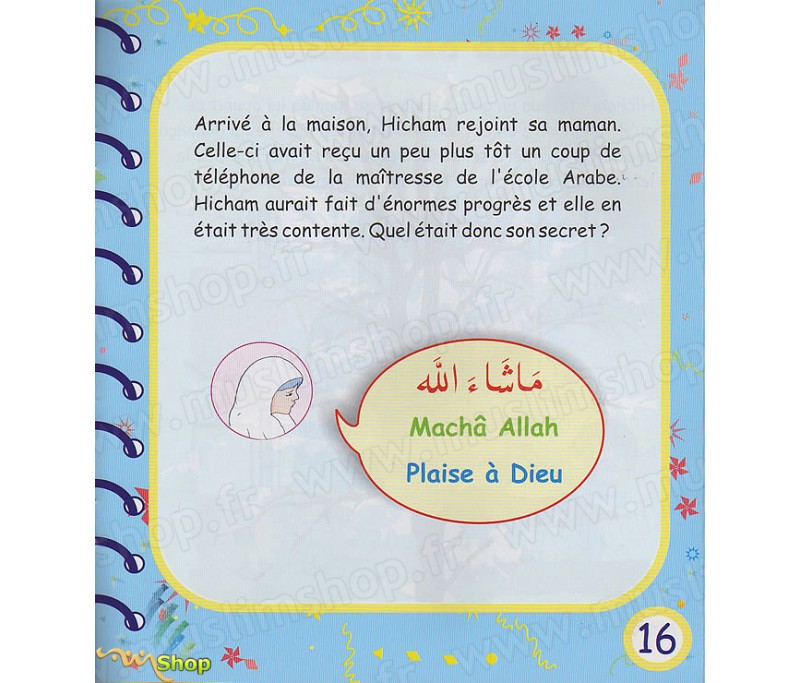 Arrivé à la maison, Hicham rejoint sa maman.
Celle-ci avait reçu un peu plus tôt un coup de
téléphone de la maîtresse de l'école Arabe.
Hicham aurait fait d'énormes progrès et elle en
était très contente. Quel était donc son secret ?
مَاشَاءَ اللَّه
Machâ Allah
Plaise à Dieu
16
Shop
www.muslimshop.fr